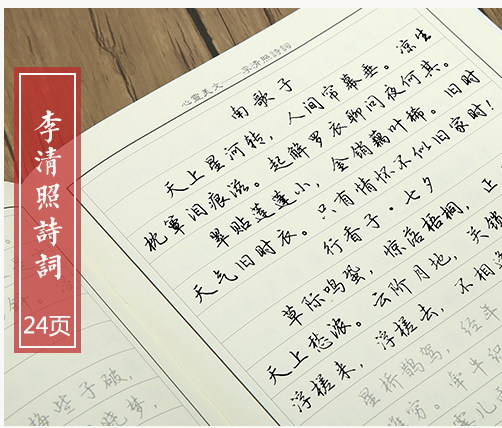 李清照詩詞
24页
心靈美文 李清照詩詞
南歌子
天上星河转，人间帘幕垂。凉生
枕簟泪痕滋。起解罗衣聊问夜何其。
翠贴莲蓬小，金销藕叶稀。旧时
天气旧时衣。只有情怀不似旧家时！
行香子·七夕
草际鸣蛩，惊落梧桐，正
天上愁浓。云阶月地，关锁
浮槎来，浮槎去，不相逢
星桥鹊驾，经年
牵牛织
梅些子破，
晓梦，